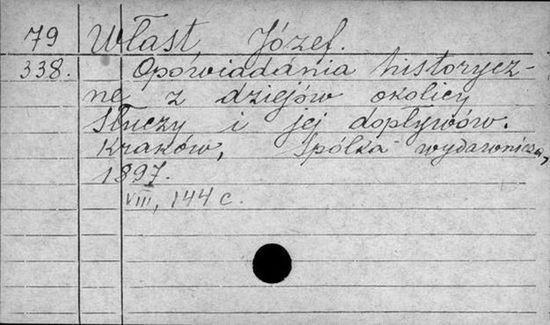 79 Włast, Józef.
338. Opowiadania historycz-
ne z dziejów okolicy
Słuczy i jej dopływów.
Kraków, Spółka wydawnicza,
1897.
VIII, 144 c.